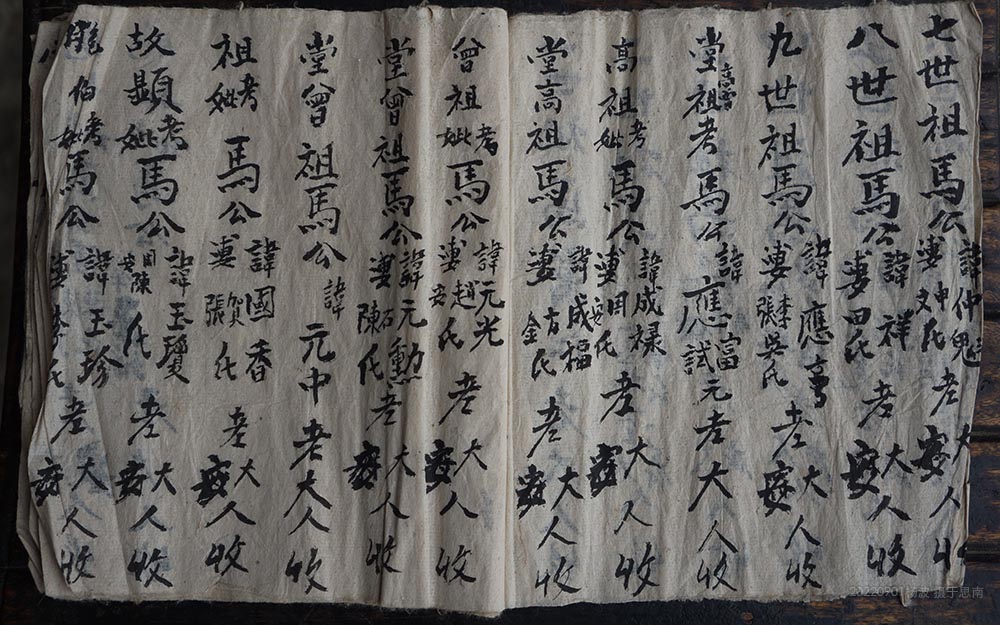 七世祖馬公諱仲魁婆申文氏老大人收
八世祖馬公諱祥婆田氏老大人收
九世祖馬公諱應亨婆李張吳氏老大人收
堂高曾祖考馬公諱應富試元老大人收
高祖考妣馬公諱成禄婆田安氏老大人收
堂高祖馬公諱成福婆方金氏老大人收
曾祖考妣馬公諱元光婆趙安氏老大人收
堂曾祖馬公諱元勳婆石陳氏老大人收
堂曾祖馬公諱元中老大人收
祖考妣馬公諱國香婆賀張氏老大人收
故顯考妣馬公諱玉瓊田陳安氏老大人收
胞伯考妣馬公諱玉珍婆李氏老大人收
20220901杨波 摄于思南